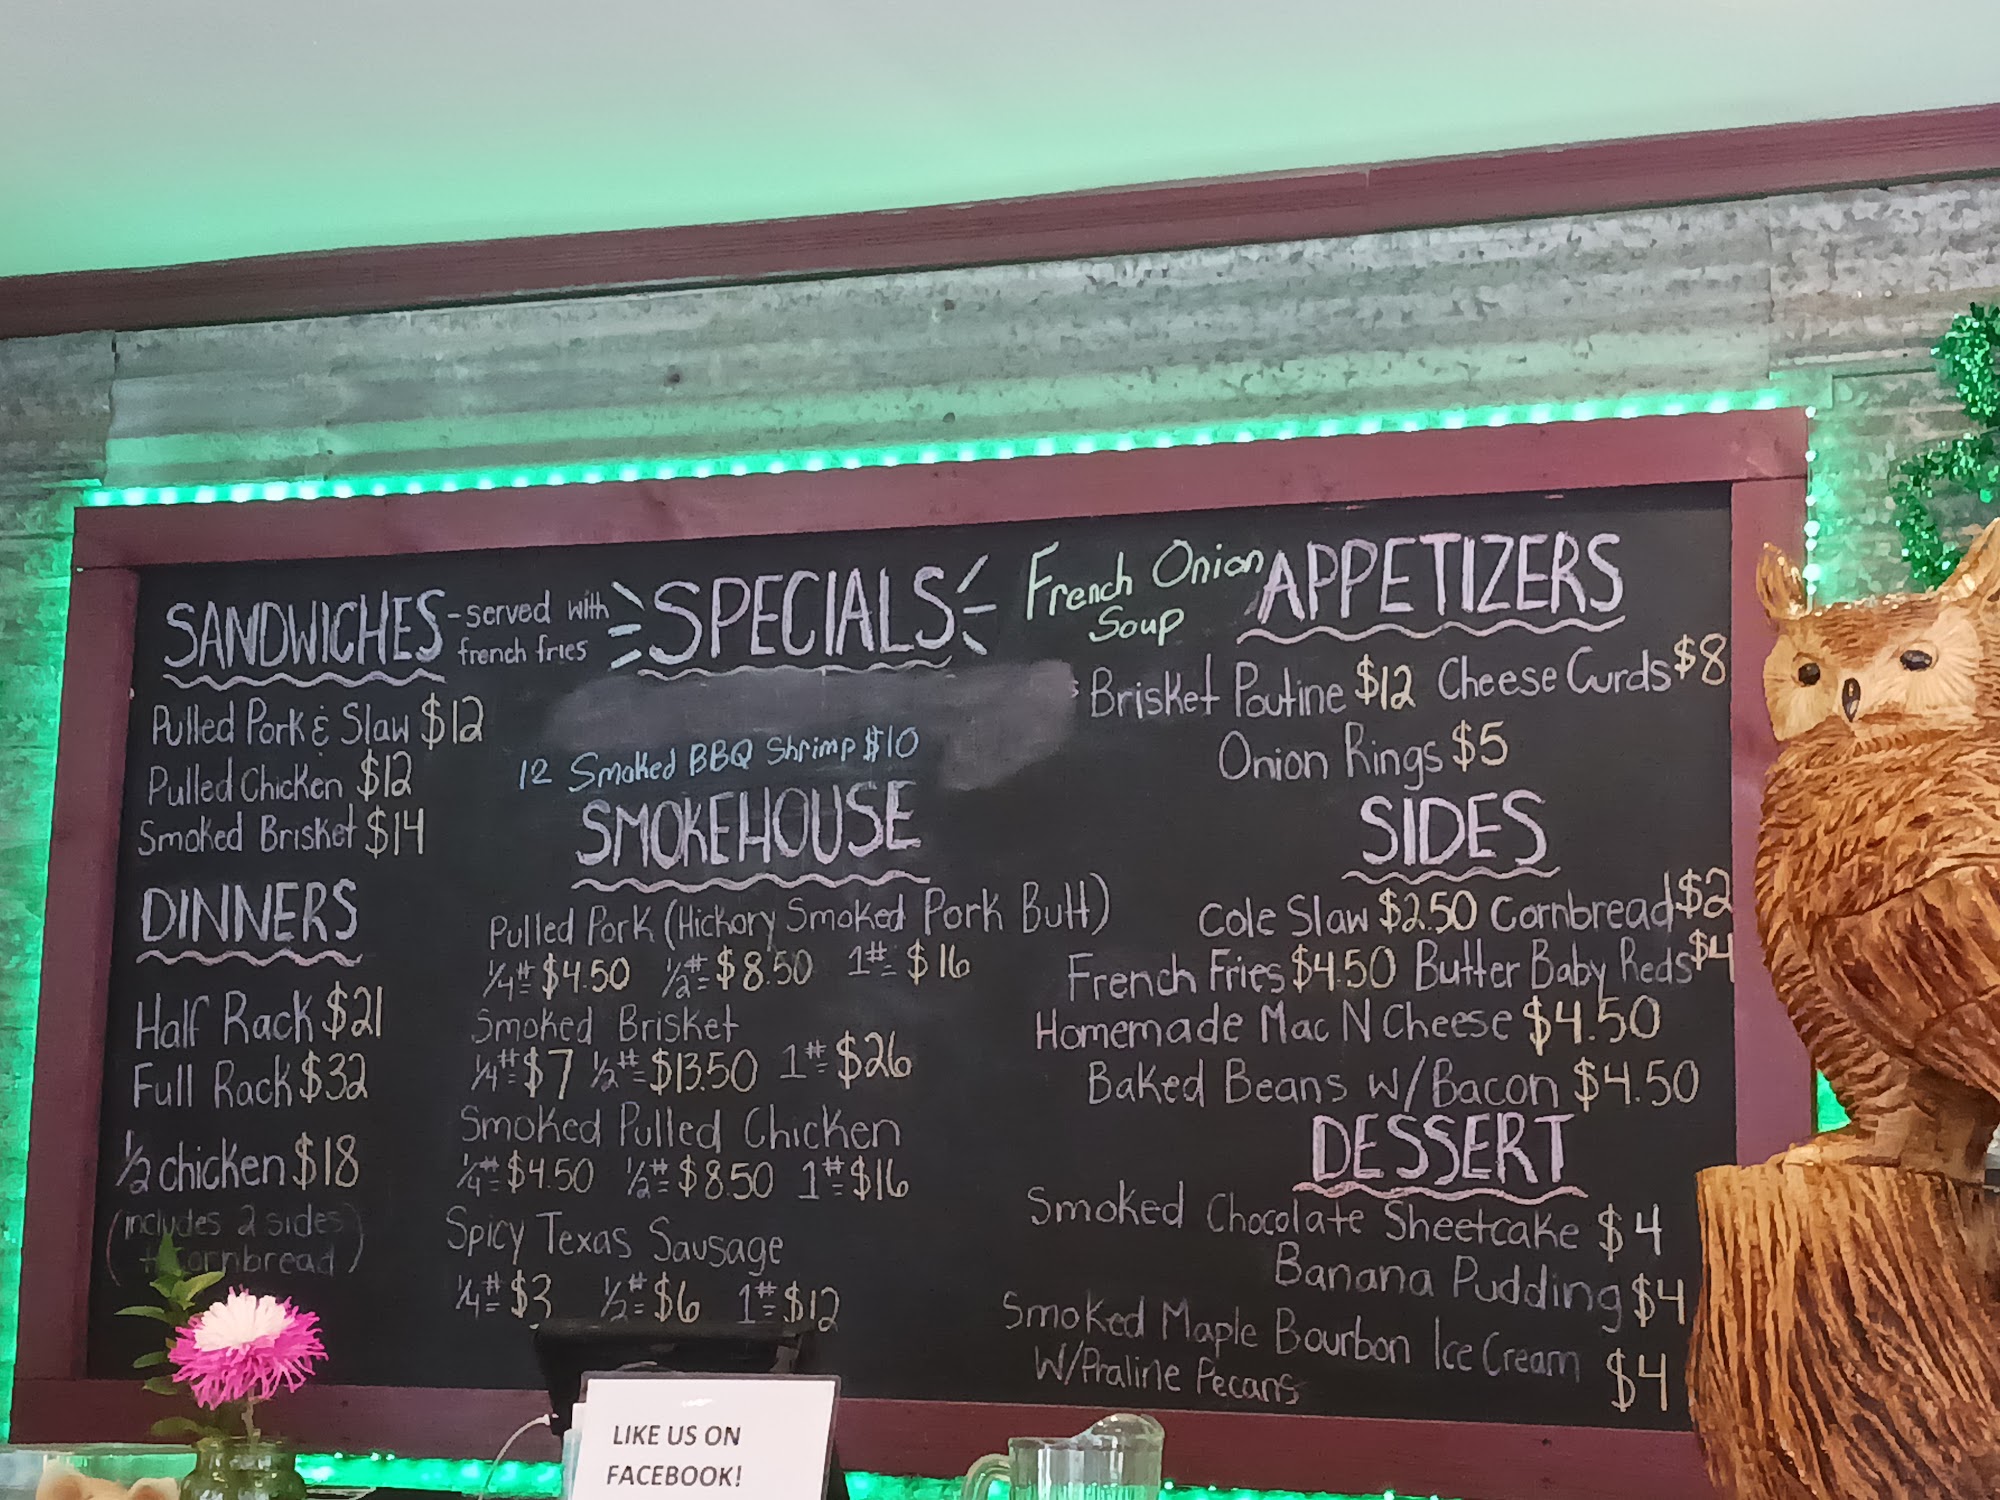 SANDWICHES - served with
french fries
Pulled Pork & Slaw $12
Pulled Chicken $12
Smoked Brisket $14
DINNERS
Half Rack $21
Full Rack $32
1/2 chicken $18
(includes 2 sides
+ cornbread)
SPECIALS
12 Smoked BBQ Shrimp $10
SMOKEHOUSE
Pulled Pork (Hickory Smoked Pork Butt)
1/4# = $4.50 1/2# = $8.50 1# = $16
Smoked Brisket
1/4# = $7 1/2# = $13.50 1# = $26
Smoked Pulled Chicken
1/4# = $4.50 1/2# = $8.50 1# = $16
Spicy Texas Sausage
1/4# = $3 1/2# = $6 1# = $12
French Onion
Soup
APPETIZERS
Brisket Poutine $12 Cheese Curds $8
Onion Rings $5
SIDES
Cole Slaw $2.50 Cornbread $2
French Fries $4.50 Butter Baby Reds $4
Homemade Mac N Cheese $4.50
Baked Beans w/Bacon $4.50
DESSERT
Smoked Chocolate Sheetcake $4
Banana Pudding $4
Smoked Maple Bourbon Ice Cream $4
W/Praline Pecans
LIKE US ON
FACEBOOK!